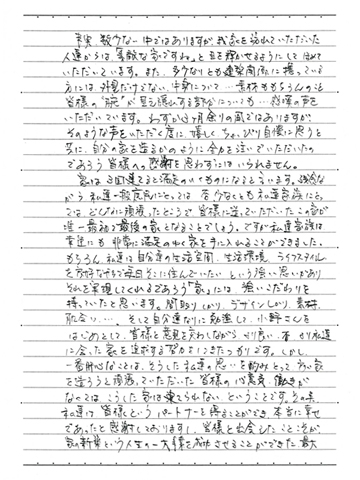 事実、数少ない中ではありますが、我家を訪れていただいた
人達からは「素敵な家ですね。」と目を輝かせるようにしてほめて
いただいています。また、多少なりとも建築関係に携っている
方には、外見だけでない、中身について…素材ももちろんのこと
皆様の"腕"が見え隠れする部分についても…称賛の声を
いただいています。わずか3ヶ月余りの間ではありますが
そのような声をいただく度に、嬉しく、ちょっぴり自慢に思うと
共に、自分の家を造るかのように全力を注いでいただいたの
であろう皆様への感謝を思わずにはいられません。
家は3回建てると満足のいくものになると言います。残念な
がら私達一般庶民にとっては、若くても私達家族にと
っては、どんなに頑張ったところで皆様に造っていただいたこの家が
唯一最初で最後の家となることでしょう。ですが私達家族は
幸運にも非常に満足のいく家を手に入れることができました。
もちろん、私達は自分達の生活空間、生活環境、ライフスタイル
を大切にする中で毎日そこに住んでいたいという強い思いがあり
それを実現してくれるであろう「家」には、強いこだわりを
持っていたと思います。間取りしかり、デザインしかり、素材、
肌合い…、そして自分達なりに勉強して、小野さんを
はじめとして、皆様と意見を交わしながらより良い、より私達
に合った家を追求する努力をしてきたつもりです。しかし、
一番肝心なことは、そうした私達の思いを酌みとって、良い家
を造ろうと頑張っていただいた皆様の心意気、働きが
なくては、こうした家は建てられないということです。その点
私達は皆様というパートナーを得ることができ、本当に幸せ
であったと感謝しておりますし、皆様と出会えたことこそが、
家の新築という人生の一大事業を成功させることができた最大